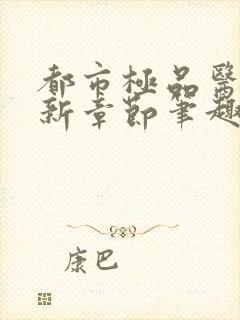 都市極品醫
新章節筆趣
康巴